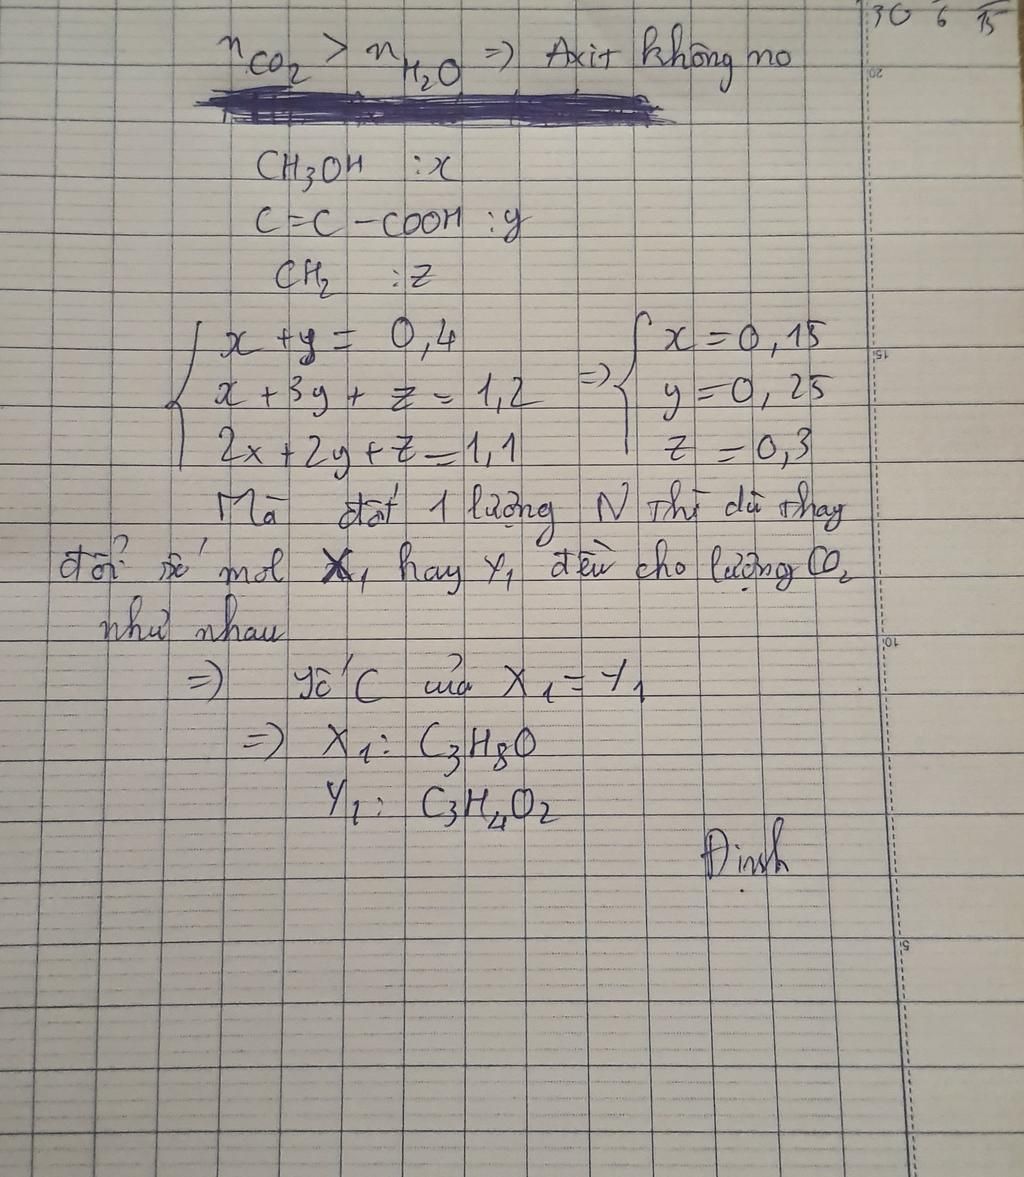 30 6 15
n CO2 > n H2O => Axit không no
20
CH3OH : x
C=C-COOH : y
CH2 : z
x + y = 0,4 => x = 0,15
15
x + 3y + z = 1,2 y = 0,25
2x + 2y + z = 1,1 z = 0,3
Mà đốt 1 lượng N thì dù thay
đổi số mol X1 hay Y1 đều cho lượng CO2
như nhau
10
=> Số C của X1 = Y1
=> X1: C3H8O
Y1: C3H4O2
Định
5